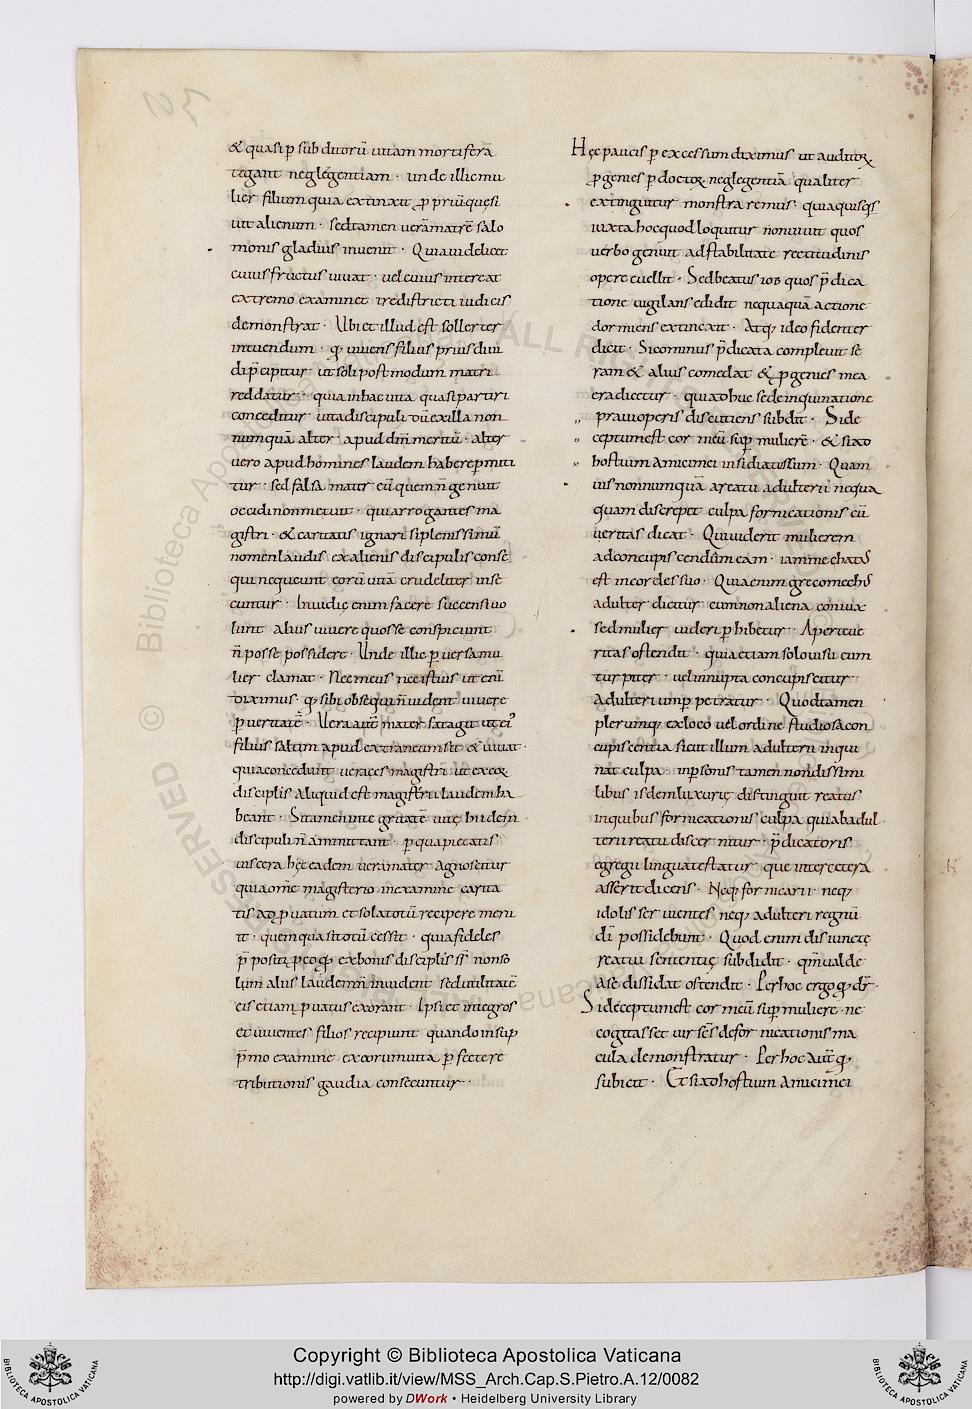 & quasi p̄ subditorū uitam mortiferā
tegant neglegentiam · unde illic mu
lier filium quia extinxit ꝓpriū quęsi
uit alienum · sed tamen uerā matrē salo
monis gladius inuenit · Quia uidelicet
cuius fructus uiuat · uel cuius intereat
extremo examine iredistricti iudicis
demonstrat · Ubi et illud est sollerter
intuendum · qđ uiuens filius prius diui
di p̄cipitur ut soli postmodum matri
reddatur · quia in hac uita quasi partiri
conceditur uita discipuli dū ex illa non
numquā alter apud dm̄ meritū · alter
uero apud homines laudem habere ꝑmitti
tur · sed falsa mater eū quem n̄ genuit
occidi non metuit · quia arrogantes ma
gistri · & caritatis ignari si plenissimū
nomen laudis ex alienis discipulis conse
qui nequeunt eorū uitā crudeliter inse
cuntur · Inuidię enim facere succensi uo
lunt alius uiuere quos se conspiciunt
n̄ posse possidere · Unde illic ꝑuersa mu
lier clamat · Nec meus nec istius ut enī
diximus · qđ sibi obsequi n̄ uident uiuere
ꝑ ueritatē · Uera aut̄ mater satagit ut ei'
filius saltim apud extraneum sit & uiuat ·
quia concedunt ueraces magistri ut ex eoꝝ
disciplis aliquid est magisterii laudem ha
beant · Si tamen integritatē uitę hi idem
discipuli n̄ ammittant · ꝑ qua pietatis
uiscera hęc eadem uera mater agnoscitur
quia om̄e magisterio in examine carita
tis atq; ꝓuatum et sola totū recipere meru
it · quem quasi totū cessit · quia fideles
p̄positi ꝓ eo qđ ex bonis disciplis ss̄ non so
lum aliis laudem n̄ inuident sed utilitatē
eis etiam ꝓuatus exorant · Ipsi et integros
et uiuentes filios recipiunt quando in sup
p̄mo examine ex eorum uita ꝑfecte re
tributionis gaudia consecuntur ·
Hęc paucis ꝑ excessum diximus ut auditoꝝ
ꝓgenies ꝑ doctoꝝ neglegentiā qualiter
extinguitur monstraremus · quia quisq̄s
iuxta hoc quod loquitur non uiuit quos
uerbo genuit ad stabilitate rectitudinis
opere euellit · Sed beatus iob quos p̄dica
tione uigilans edidit nequaquā actione
dormiens extinxit · Atq; ideo fidenter
dicit · Si cominus p̄dicata compleuit se
ram & alius comedat & ꝓgenies mea
eradicetur · qui adhuc se de inquinatione
praui operis discutiens subdit · Si de
ceptum est cor meū sup̄ mulierē · & si ad
hostium amici mei insidiatus sum · Quam
uis nonnumquā a reatu adulterii nequa
quam discrepet culpa fornicationis cū
ueritas dicat · Qui uiderit mulierem
ad concupiscendum eam · iam mechatus
est in corde suo · Quia enim grece mechus
adulter dicitur cum non aliena coniux
sed mulier uideri ꝓhibetur · Aperte ue
ritas ostendit · quia etiam solo uisu cum
turpiter · uel innupta concupiscitur
adulterium ꝑpetratur · Quod tamen
plerumq; ex loco uel ordine studiosa con
cupiscentia sicut illum adulterii inqui
nat culpa · inꝑsonis tamen non dissimi
libus isdem luxurię distinguit reatus
in quibus fornicationis culpa quia ab adul
terii reatu discernitur · p̄dicatoris
egregii lingua testatur · que inter cetera
asserit dicens · Neq; fornicarii · neq;
idolis seruientes neq; adulteri regnū
dī possidebunt · Quod enim disiunctę
reatui sententię subdidit · qm̄ ualde
a se dissidat ostendit · Per hoc ergo qđ dr̄ ·
Si deceptum est cor meū sup̄ muliere · ne
cogitasset uir scs̄ de fornicationis ma
cula demonstratur · Per hoc aut̄ qđ
subicit · Et si ad hostium amici mei
Copyright © Biblioteca Apostolica Vaticana
http://digi.vatlib.it/view/MSS_Arch.Cap.S.Pietro.A.12/0082
powered by DWork • Heidelberg University Library